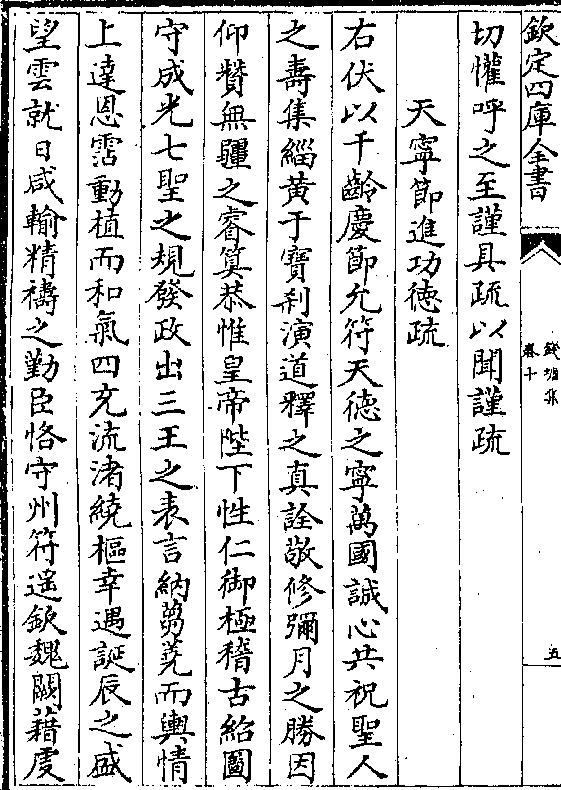 欽定四庫全書
錢塘集
卷十
五
切懽呼之至謹具疏以聞謹疏
天寧節進功徳疏
右伏以千齡慶節允符天徳之寧萬國誠心共祝聖人
之夀集緇黄于寶刹演道釋之真詮敬修彌月之勝因
仰賛無疆之睿算恭惟皇帝陛下性仁御極稽古紹圖
守成光七聖之規發政出三王之表言納蒭蕘而輿情
上達恩霑動植而和氣四充流渚繞樞幸遇誕辰之盛
望雲就日咸輸精禱之勤臣恪守州符遥欽魏闕藉虔